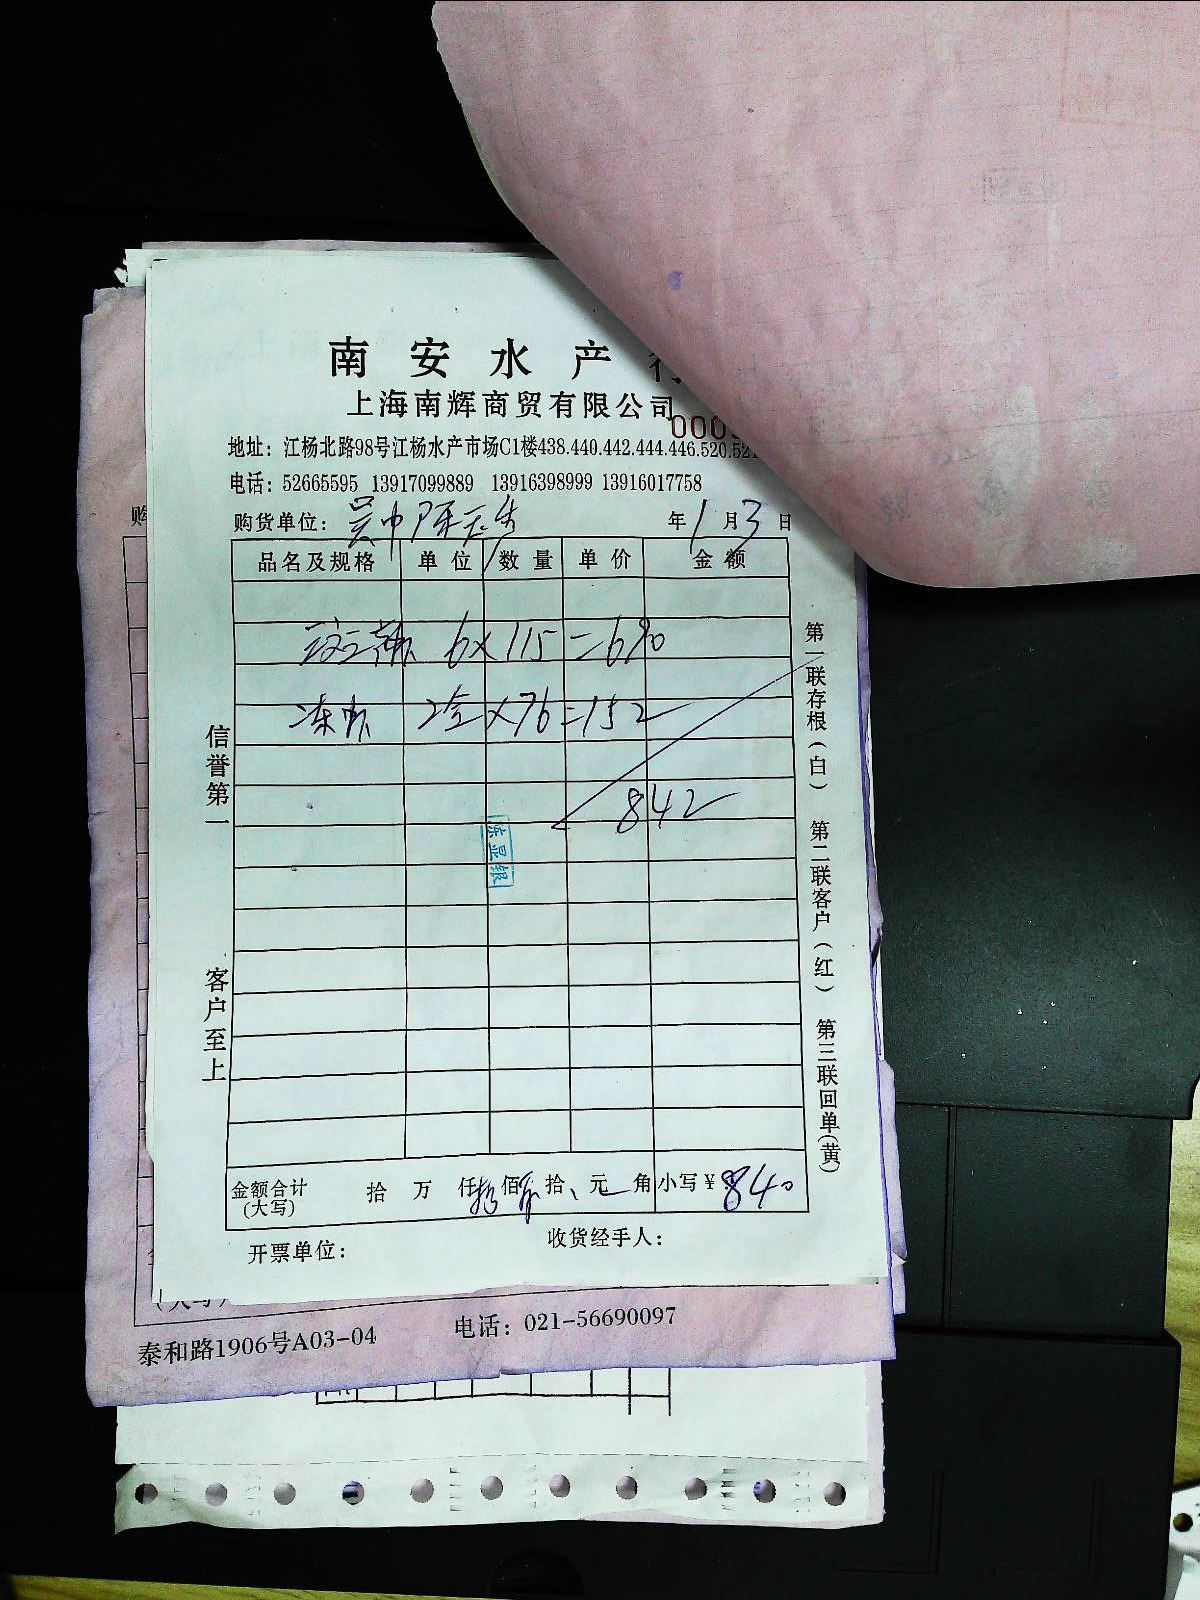 南安水产行
上海南辉商贸有限公司
000
地址：江杨北路98号江杨水产市场C1楼438.440.442.444.446.520.521
电话：52665595 13917099889 13916398999 13916017758
购货单位： 年1月3日
品名及规格 单位 数量 单价 金额
6×115=690
2 ×76=152
842
陈显银
信誉第一
客户至上
第一联存根(白) 第二联客户(红) 第三联回单(黄)
金额合计(大写) 拾 万 仟 佰 拾 元 角 小写¥：840
开票单位： 收货经手人：
购
(大写)
泰和路1906号A03-04 电话：021-56690097